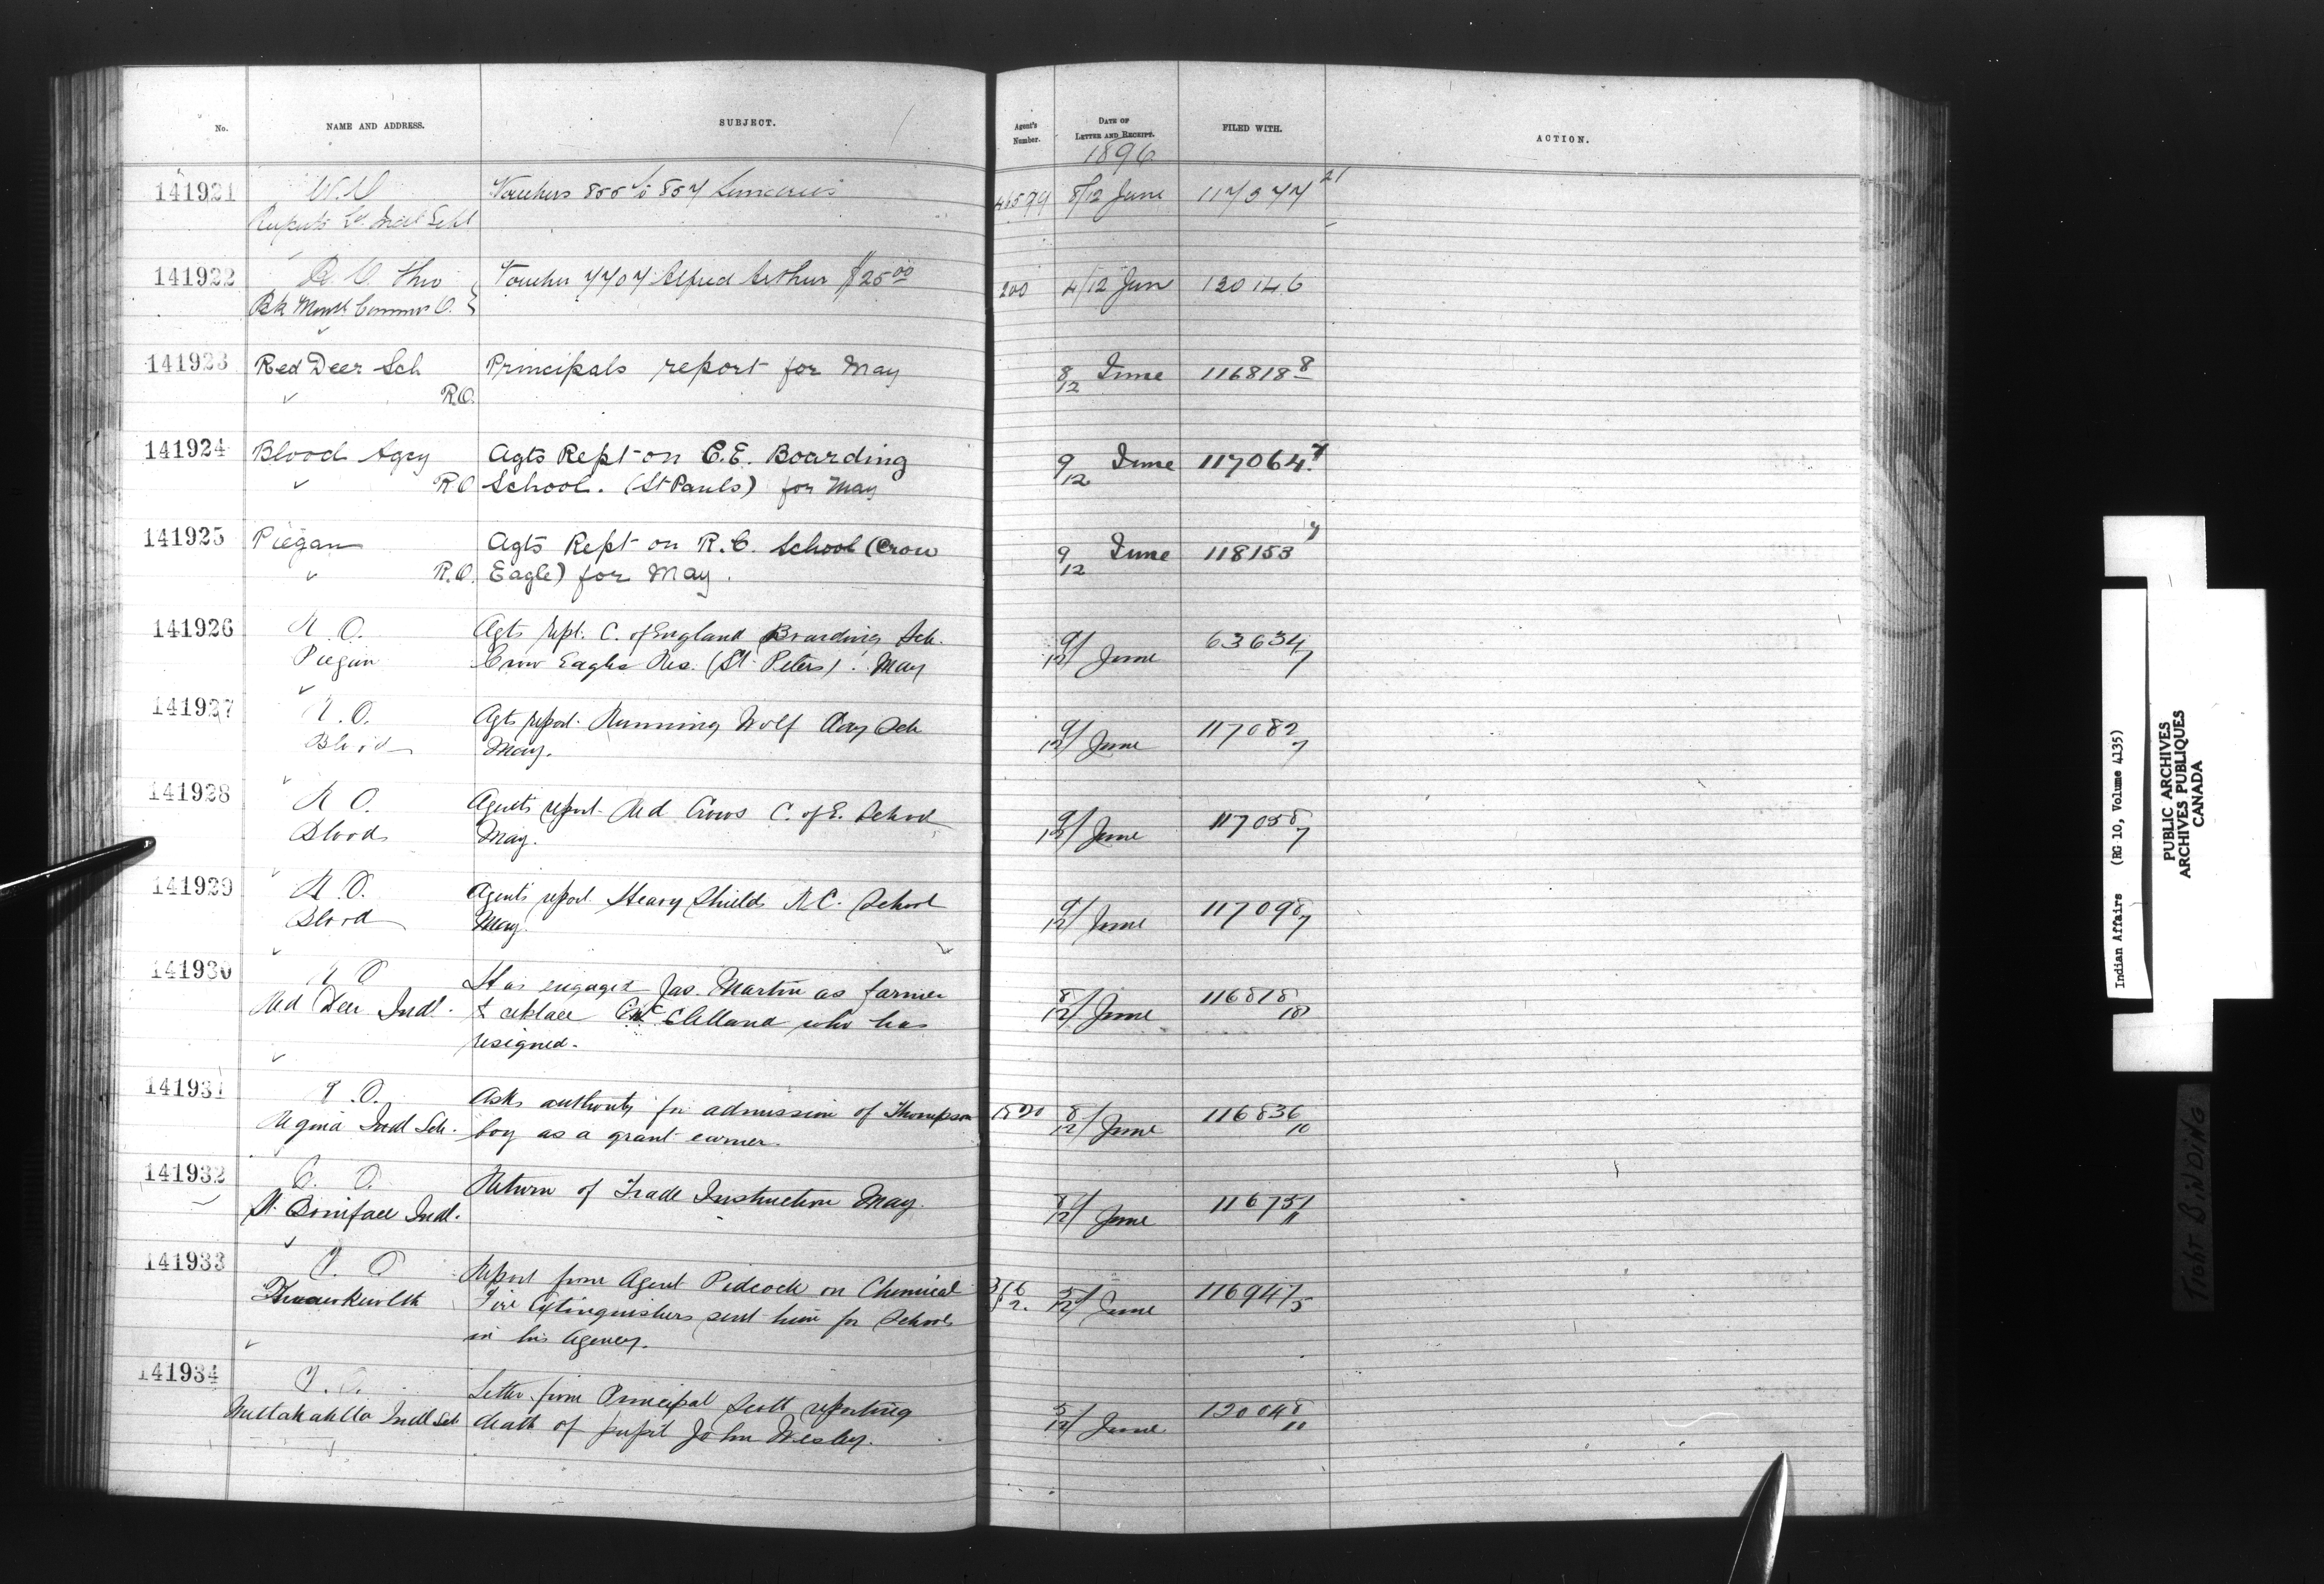 No. NAME AND ADDRESS. SUBJECT. Agent's Number. DATE OF LETTER AND RECEIPT. FILED WITH. ACTION.
1896
141921 Vouchers 855 to 857 Sundries 8/12 June 117377 21
Ruperts Ld. Indl Schl
141922 Voucher 7707 Alfred Arthur $25.00 200 4/12 Jun 120146
Bk Montl
141923 Red Deer Sch Principals report for May 8/12 June 116818 8
R.O.
141924 Blood Agcy Agts Rept on C.E. Boarding 9/12 June 117064 7
R.O. School. (St Pauls) for May
141925 Piegan Agts Rept on R.C. School (Crow 9/12 June 118153 7
R.O. Eagle) for May.
141926 R.O. Agts rept. C. of England Boarding Sch. 9/12 June 63634 7
Piegan Crow Eagles Res. (St. Peters). May
141927 R.O. Agts report. Running Wolf Day Sch 9/12 June 117082 7
Blood May.
141928 R.O. Agents report Red Crows C. of E. School 9/12 June 117058 7
Blood May.
141929 R.O. Agents report. Heavy Shields R.C. School 9/12 June 117098 7
Blood May.
141930 R.O. Has engaged Jas. Martin as farmer 8/12 June 116818 18
Red Deer Indl. to replace McClelland who has
resigned.
141931 Asks authority for admission of Thompson 1520 8/12 June 116836 10
Regina Indl Sch. boy as a grant earner.
141932 Return of Trade Instruction May. 8/12 June 116751 11
St. Boniface Indl.
141933 Report from Agent Pidcock on Chemical 5/12 June 116947 5
Fire Extinguishers sent him for Schools
in his Agency.
141934 Letter from Principal Scott reporting 5/12 June 120048 10
Indl Sch death of pupil John Wesley.
Indian Affairs (RG 10, Volume 4135)
PUBLIC ARCHIVES
ARCHIVES PUBLIQUES
CANADA
TIGHT BINDING